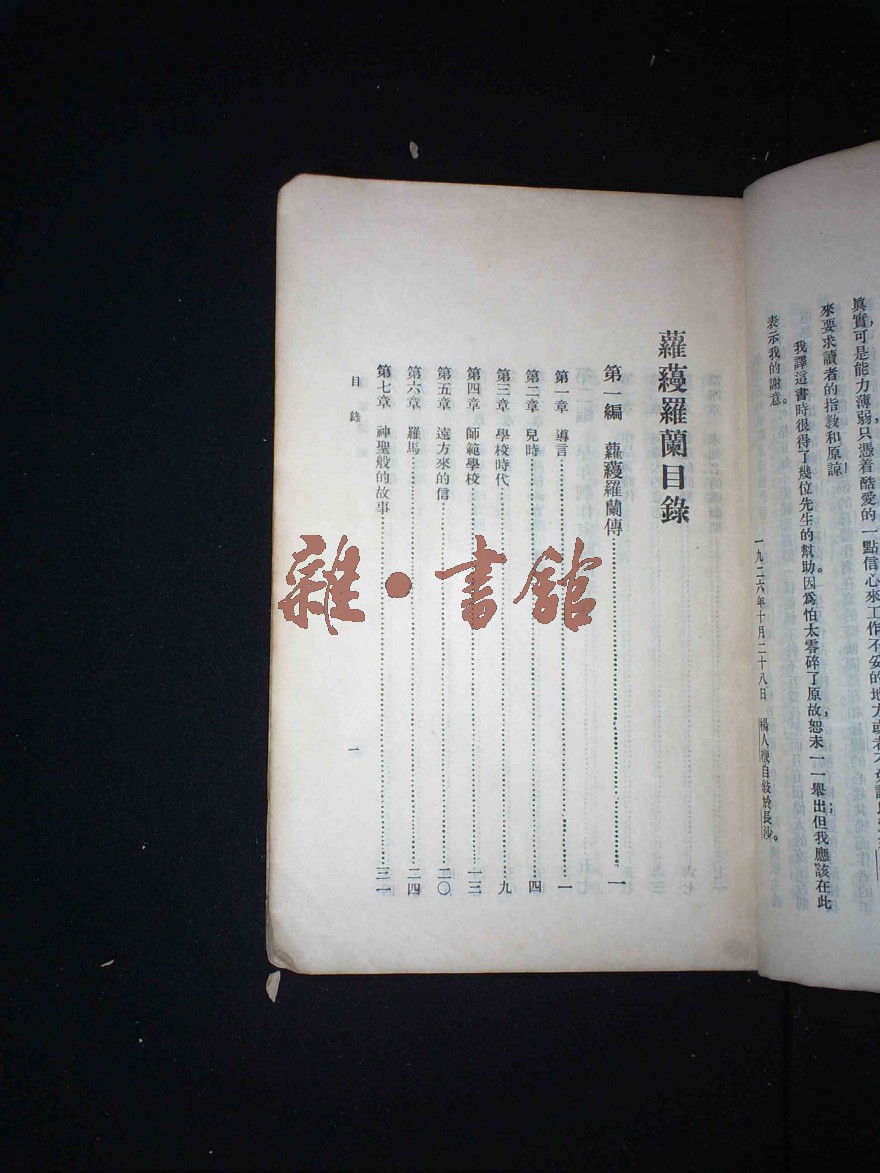 真實可是能力薄弱只憑着酷愛的一點信心來工作不妥的地方或者不
來要求讀者的指教和原諒！
我譯這書時很得了幾位先生的幫助因爲怕太零碎了原故恕未一一舉出但我應該在此；
表示我的謝意。
一九二六年十月二十八日 楊人楩自敍於長沙。
蘿蔓羅蘭目錄
第一編 蘿蔓羅蘭傳 一
第一章 導言 一
第二章 兒時 四
第三章 學校時代 九
第四章 師範學校 一三
第五章 遠方來的信 二〇
第六章 羅馬 二四
第七章 神聖般的故事 三一
目錄
一
雜·書館